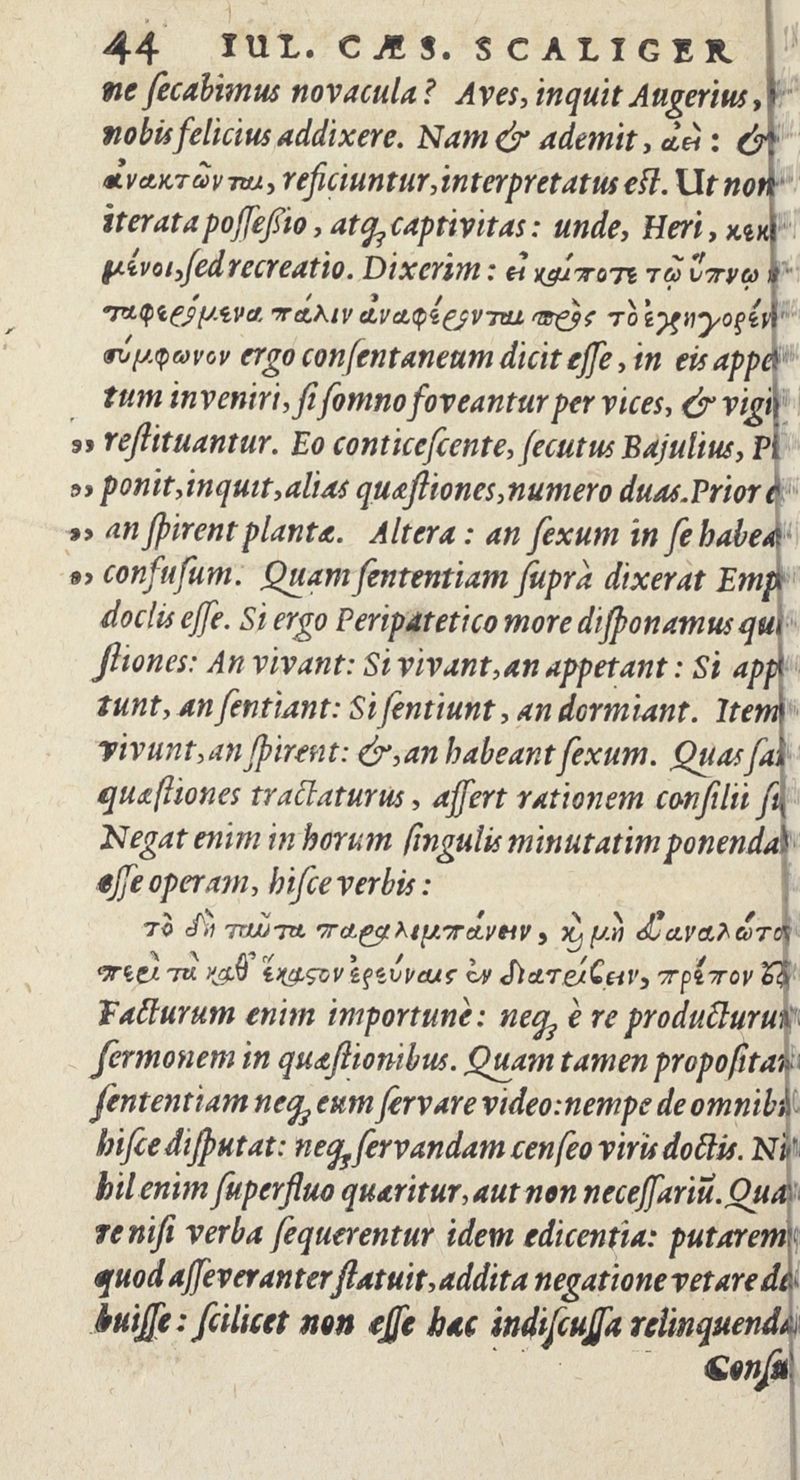 44 IUL. CÆS. SCALIGER
ne ſecabimus novacula? Aves, inquit Augerius,
nobis felicius addixere. Nam & ademit, ἀεὶ: &
ἀνακτῶνται, reficiuntur, interpretatus eſt. Ut non
iterata poſſeßio, atq; captivitas: unde, Heri, κεκ
μένοι, ſed recreatio. Dixerim: εἰ καίποτε τῷ ὕπνῳ
ταφερόμενα πάλιν ἀναφέρονται πρὸς τὸ ἐγρηγορέν
σύμφωνον ergo conſentaneum dicit eſſe, in eis appe
tum inveniri, ſi ſomno foveantur per vices, & vigi
„ reſtituantur. Eo conticeſcente, ſecutus Bajulius, P
„ ponit, inquit, alias quæſtiones, numero duas. Prior e
„ an ſpirent plantæ. Altera: an ſexum in ſe habea
„ confuſum. Quam ſententiam ſuprà dixerat Emp
doclis eſſe. Si ergo Peripatetico more diſponamus qu
ſtiones: An vivant: Si vivant, an appetant: Si app
tunt, an ſentiant: Si ſentiunt, an dormiant. Item
vivunt, an ſpirent: &, an habeant ſexum. Quas ſa
quæſtiones tractaturus, affert rationem conſilii ſu
Negat enim in horum ſingulis minutatim ponenda
eſſe operam, hiſce verbis:
τὸ δὴ ταῦτα παραλιμπάνειν, καὶ μὴ δι᾽ ἀναλώτο
περὶ τὰ καθ᾽ ἕκαστον ἐρεύναις ἐν διατρίβειν, πρέπον
Facturum enim importunè: neq; è re producturum
ſermonem in quæſtionibus. Quam tamen propoſitam
ſententiam neq; eum ſervare video: nempe de omnib
hiſce diſputat: neq; ſervandam cenſeo viris doctis. Ni
hil enim ſuperfluo quæritur, aut non neceſſariū. Qua
re niſi verba ſequerentur idem edicentia: putarem
quod aſſeveranter ſtatuit, addita negatione vetare de
buiſſe: ſcilicet non eſſe hac indiſcuſſa relinquenda
Conſu